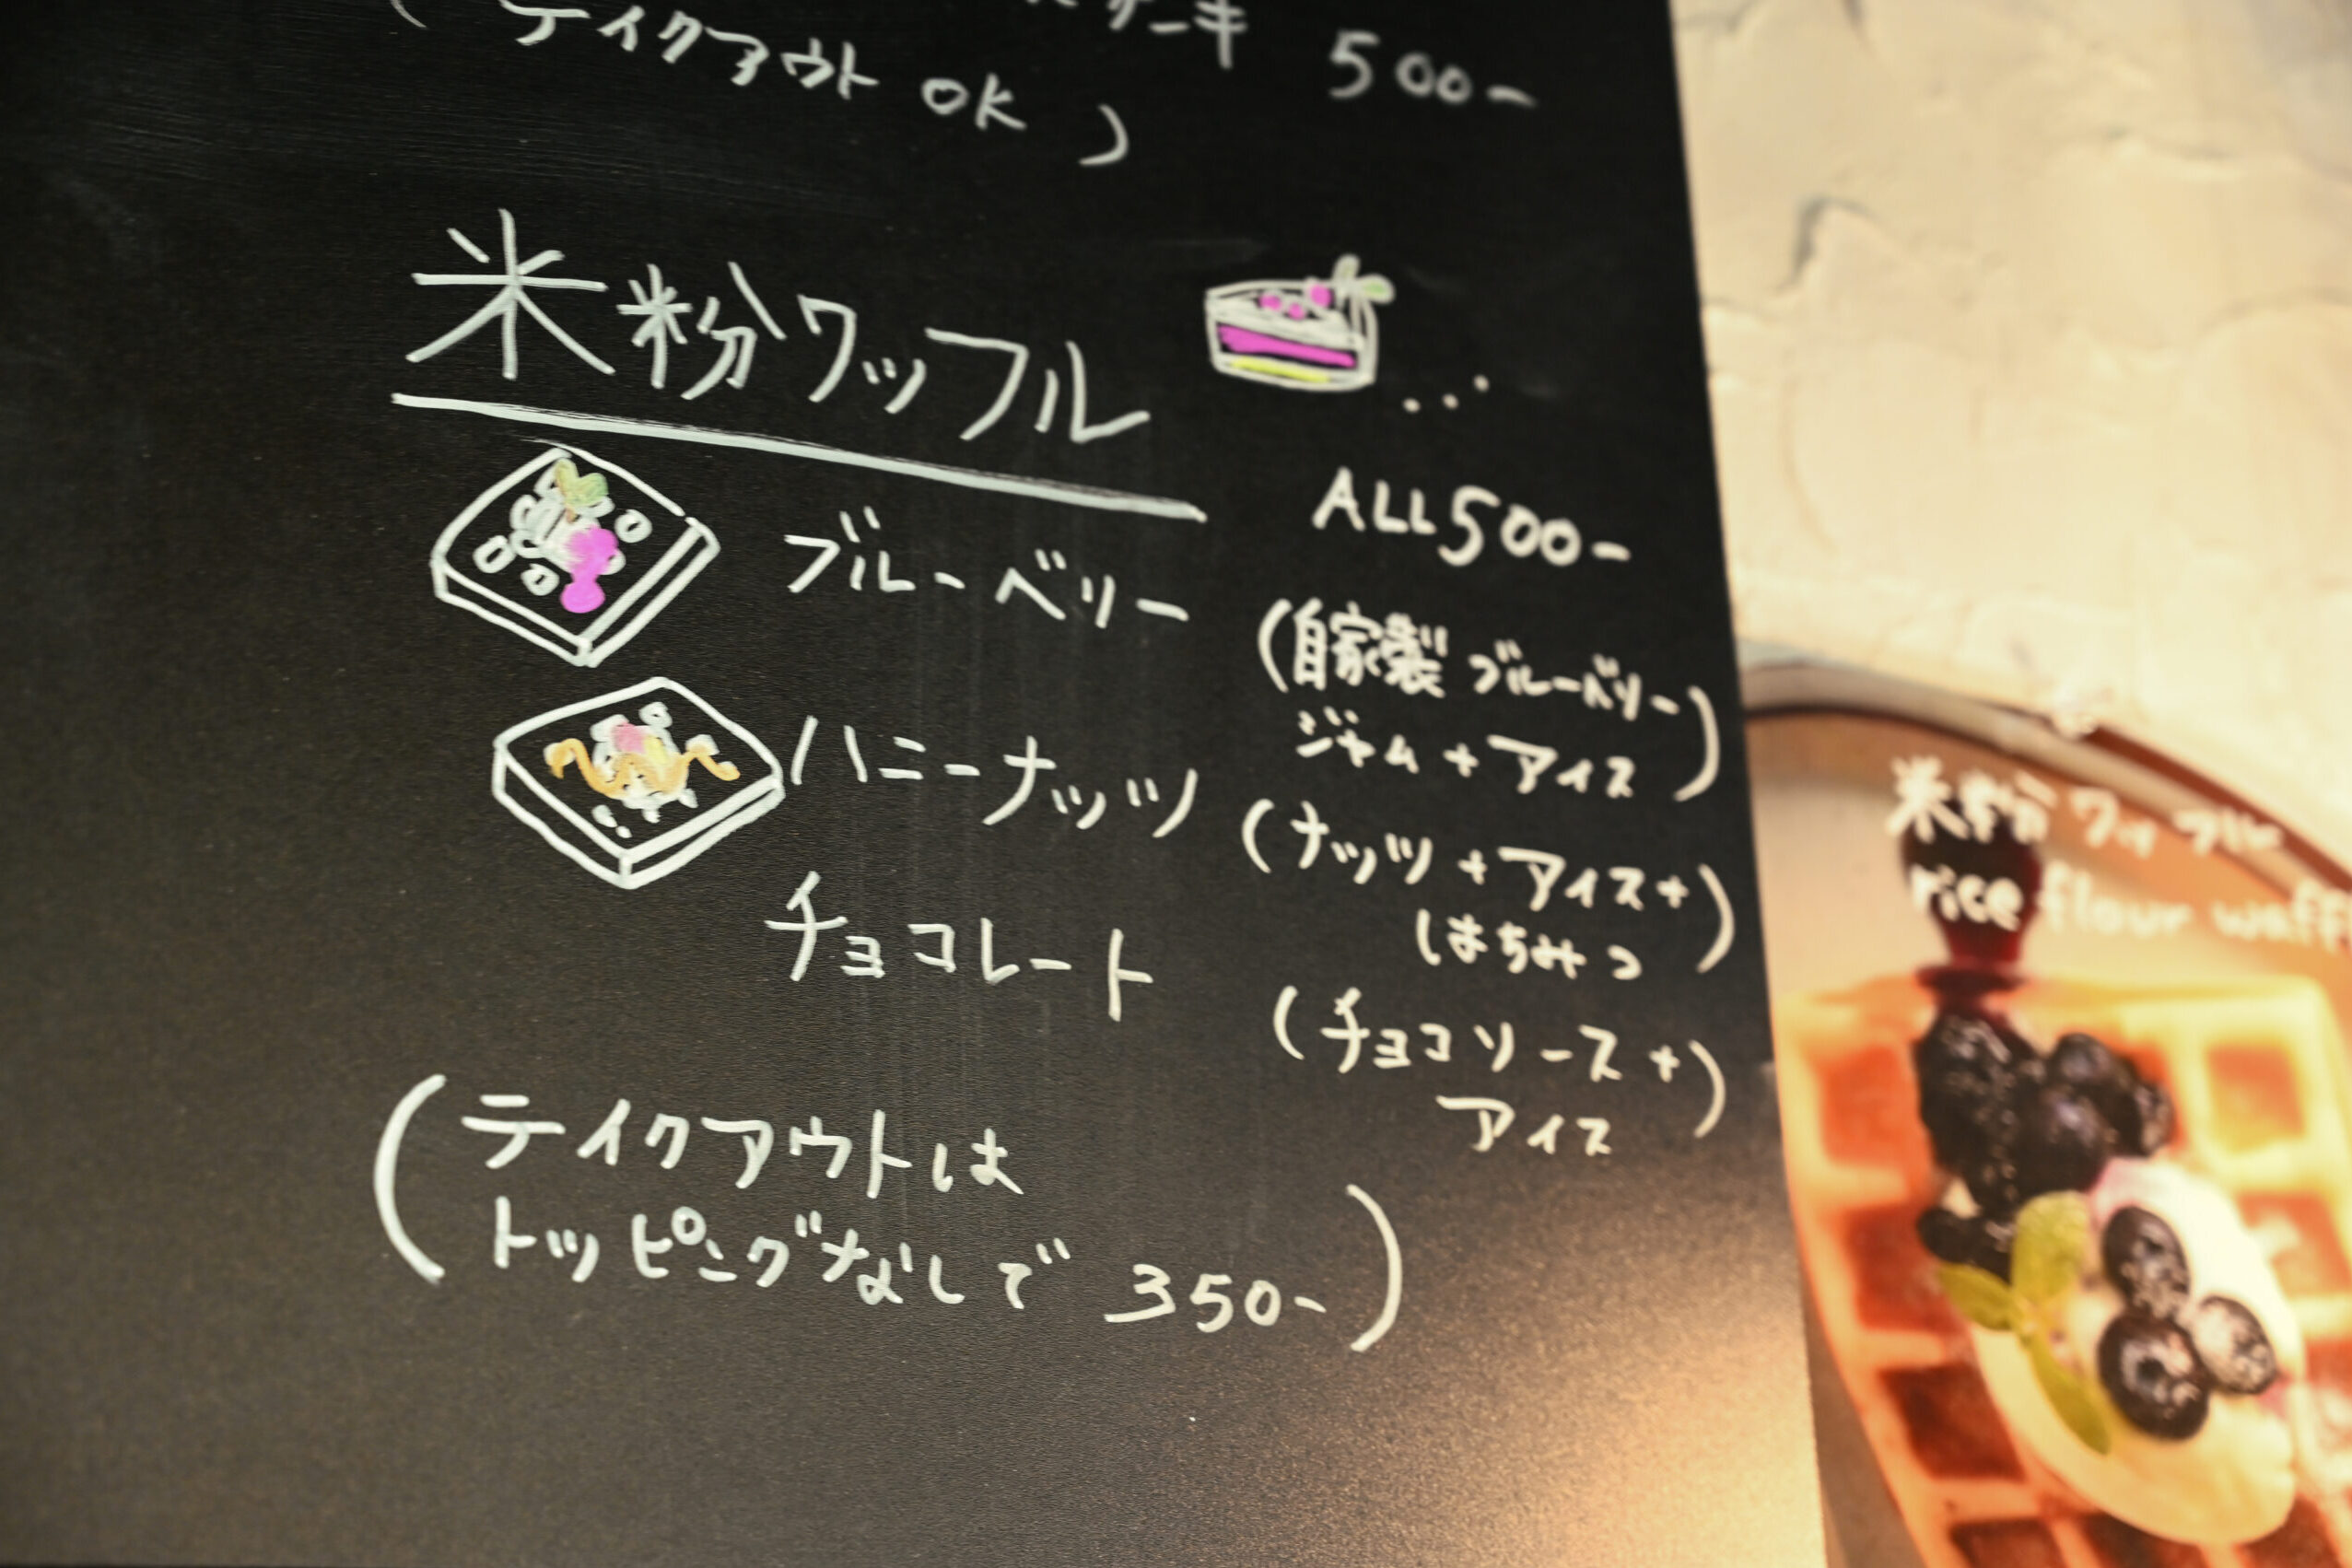 ケーキ 500-
(テイクアウト OK)
米粉ワッフル
ALL500-
ブルーベリー
(自家製 ブルーベリー
ジャム+アイス)
ハニーナッツ
(ナッツ+アイス+
はちみつ)
チョコレート
(チョコソース+
アイス)
(テイクアウトは
トッピングなしで 350-)
米粉ワッフル
rice flour